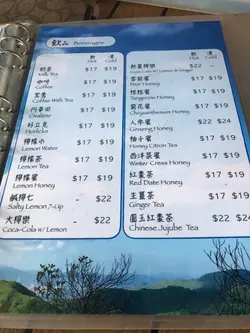 飲品 Beverages
熱 凍
Hot Cold
奶茶 $17 $19
Milk Tea
咖啡 $17 $19
Coffee
鴛鴦 $17 $19
Coffee With Tea
阿華田 $17 $19
Ovaltine
好立克 $17 $19
Horlicks
檸檬水 $17 $19
Lemon Water
檸檬茶 $17 $19
Lemon Tea
檸檬蜜 $17 $19
Lemon Honey
鹹檸七 - $22
Salty Lemon 7-Up
大檸樂 - $22
Coca-Cola w/ Lemon
熱 凍
Hot Cold
$22 -
Coca-Cola w/ Lemon & Ginger
雪梨蜜 $17 $19
Pear Honey
柑桔蜜 $17 $19
Tangerine Honey
菊花蜜 $17 $19
Chrysanthemum Honey
人參蜜 $22 $24
Ginseng Honey
柚子蜜 $17 $19
Honey Citron Tea
西洋菜蜜 $17 $19
Winter Cress Honey
紅棗茶 $17 $19
Red Date Honey
生薑茶 $17 $19
Ginger Tea
圓玉紅棗茶 $22 $24
Chinese Jujube Tea